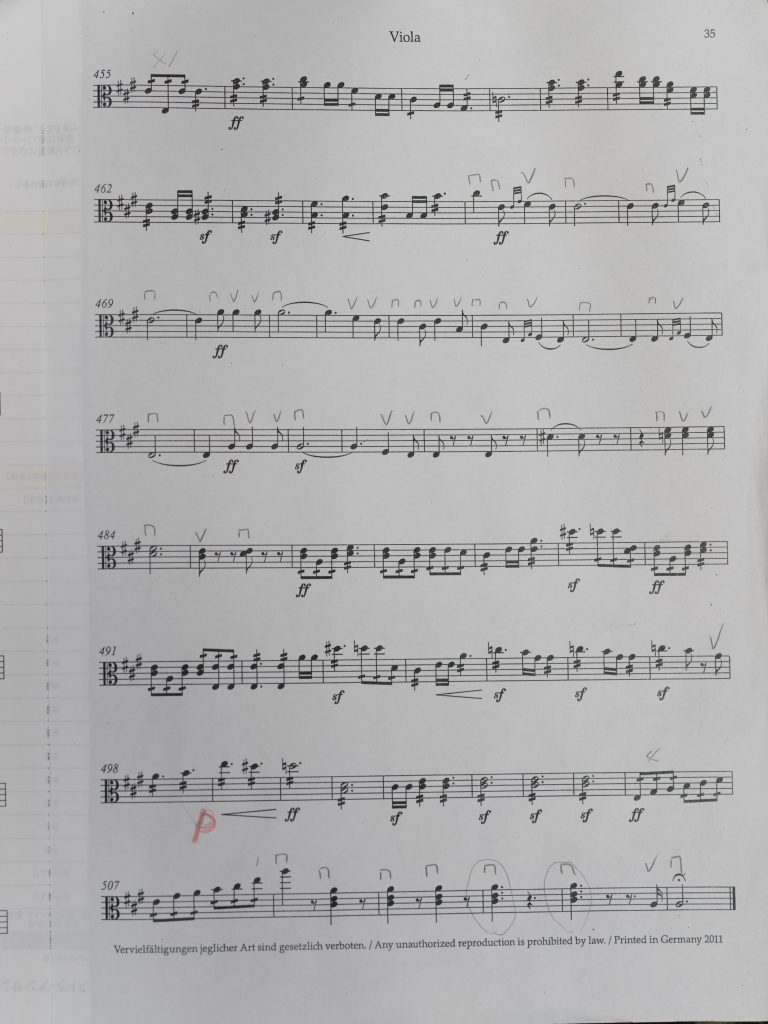 Viola
35
455
ff
462
sf sf ff
469
ff
477
ff sf
484
ff sf ff
491
sf sf sf sf
498
p ff sf sf sf sf ff
507
Vervielfältigungen jeglicher Art sind gesetzlich verboten. / Any unauthorized reproduction is prohibited by law. / Printed in Germany 2011